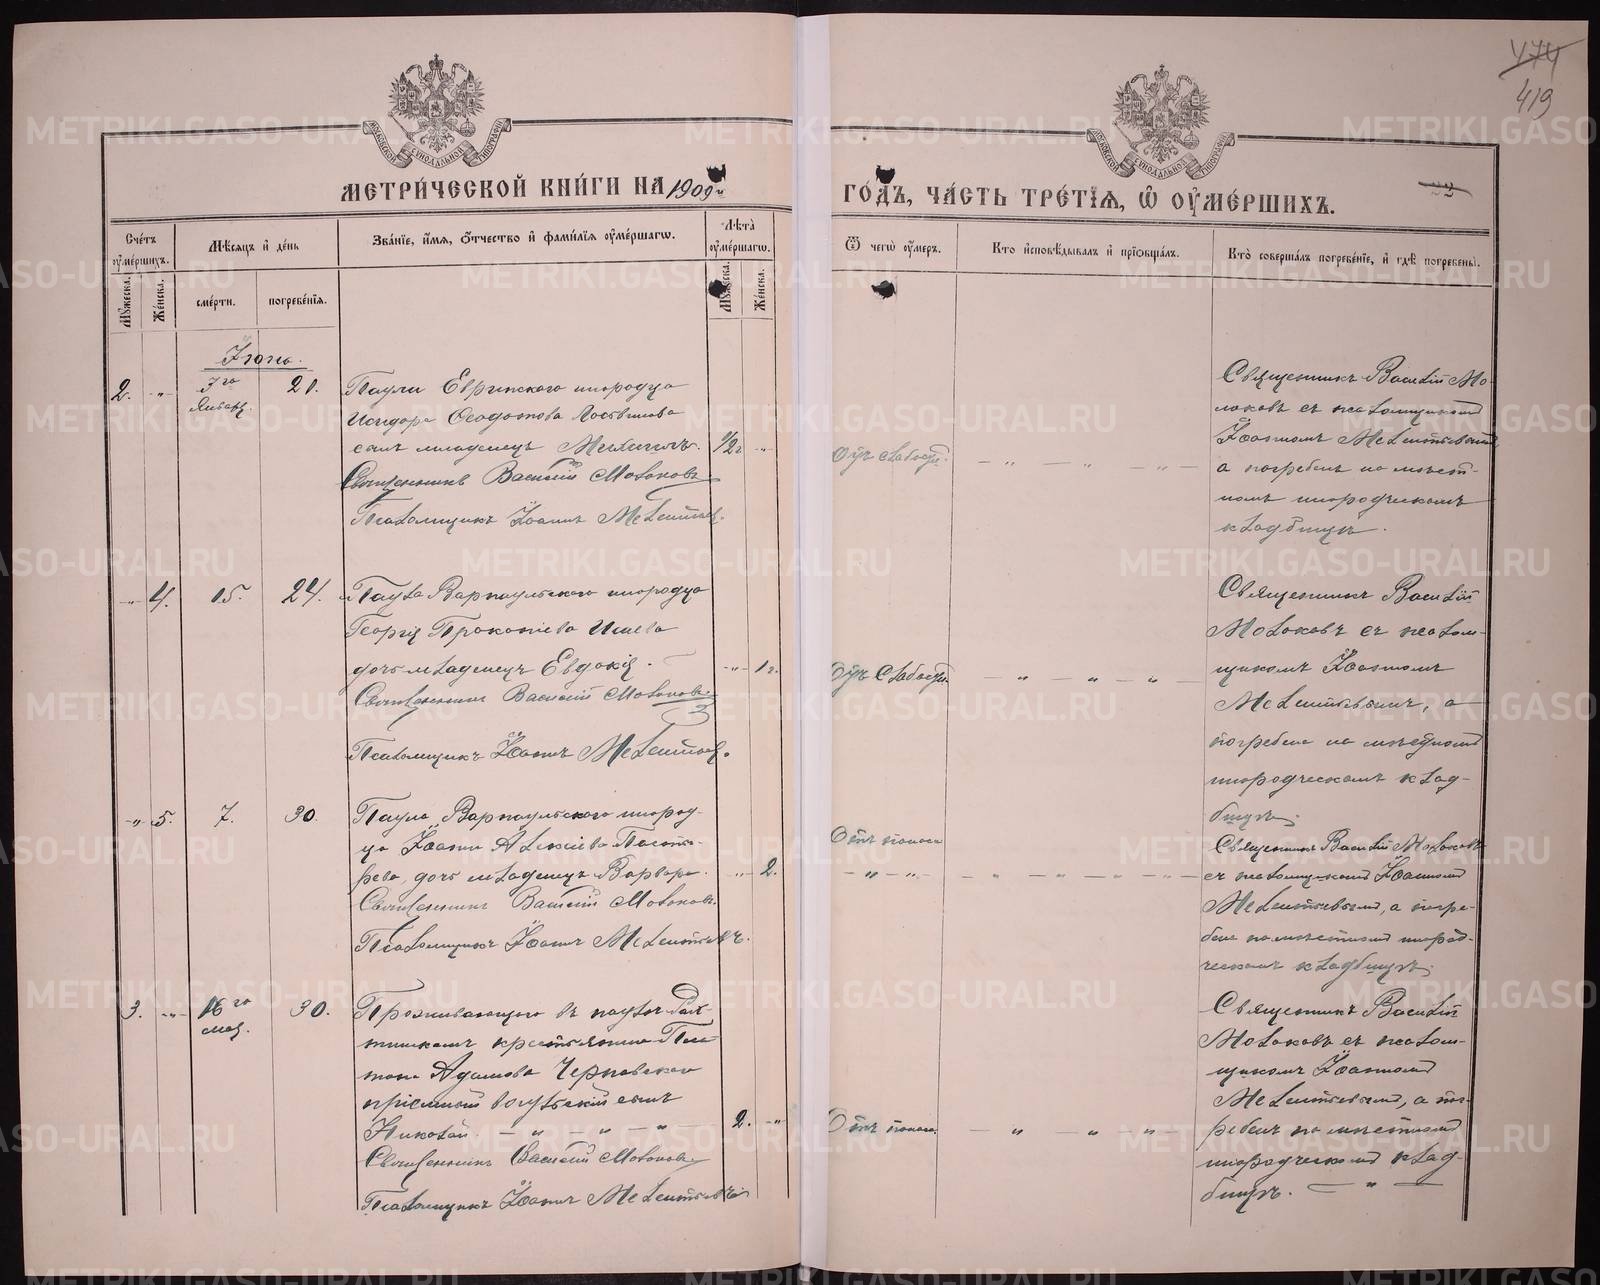 474
419
МОСКОВСКОЙ СѴНОДАЛЬНОЙ ТИПОГРАФІИ
МОСКОВСКОЙ СѴНОДАЛЬНОЙ ТИПОГРАФІИ
МЕТРИ́ЧЕСКОЙ КНИ́ГИ НА 1909й
ГО́ДЪ, ЧА́СТЬ ТРЕ́ТІѦ, Ѿ ОУ҆МЕ́РШИХЪ.
Сче́тъ оу҆ме́ршихъ.
Му́жеска.
Же́нска.
Мѣ́сяцъ и҆ де́нь
сме́рти.
погребе́нія.
Зва́ніе, и҆́мя, о҆́тчество и҆ фами́лія оу҆ме́ршагѡ.
Лѣ́та оу҆ме́ршагѡ.
Му́жеска.
Же́нска.
Ѿ чегѡ̀ оу҆́меръ.
Кто̀ и҆сповѣ́дывалъ и҆ прїѡбща́лъ.
Кто̀ соверша́лъ погребе́ніе, и҆ гдѣ̀ погребены̀.
Іюнь.
2. -„-
3го Января.
21.
Паули Евринского инородца
Исидора Ѳеодотова
сынъ младенецъ
Священникъ Василій Молоковъ
Псаломщикъ Іоаннъ Мелентьев.
1/2 г
Отъ слабост.
Священникъ Василій Мо-
локовъ съ псаломщикомъ
Іоанномъ Мелентьевымъ
а погребенъ на мѣст-
номъ инородческомъ
кладбищѣ.
-„- 4.
15.
24.
Паула Варпаульского инородца
Георгія Прокопіева
дочь младенецъ Евдокія.
Священникъ Василій Молоковъ
Псаломщикъ Іоаннъ Мелентьев.
-„- 1 г.
Отъ слабости.
Священникъ Василій
Молоковъ съ псалом-
щикомъ Іоанномъ
Мелентьевымъ, а
погребена на мѣстномъ
инородческомъ клад-
бищѣ.
-„- 5.
7.
30.
Паула Варпаульского инород-
ца Іоанна Алексіева
дочь младенецъ Варвара.
Священникъ Василій Молоковъ.
Псаломщикъ Іоаннъ Мелентьевъ.
-„- 2.
Отъ поноса
Священникъ Василій Молоковъ
съ псаломщикомъ Іоанномъ
Мелентьевымъ, а погре-
бена на мѣстномъ инород-
ческомъ кладбищѣ.
3. -„-
16го мая.
30.
Проживающаго въ паулѣ
крестьянина Пла-
тона Адамова Черновского
пріемный вогульскій сынъ
Николай. - „ - „ - „ -
Священникъ Василій Молоковъ
Псаломщикъ Іоаннъ Мелентьевъ
2. -„-
Отъ поноса.
Священникъ Василій
Молоковъ съ псалом-
щикомъ Іоанномъ
Мелентьевымъ, а пог-
ребенъ на мѣстномъ
инородческомъ клад-
бищѣ. - „ -
METRIKI.GASO-URAL.RU